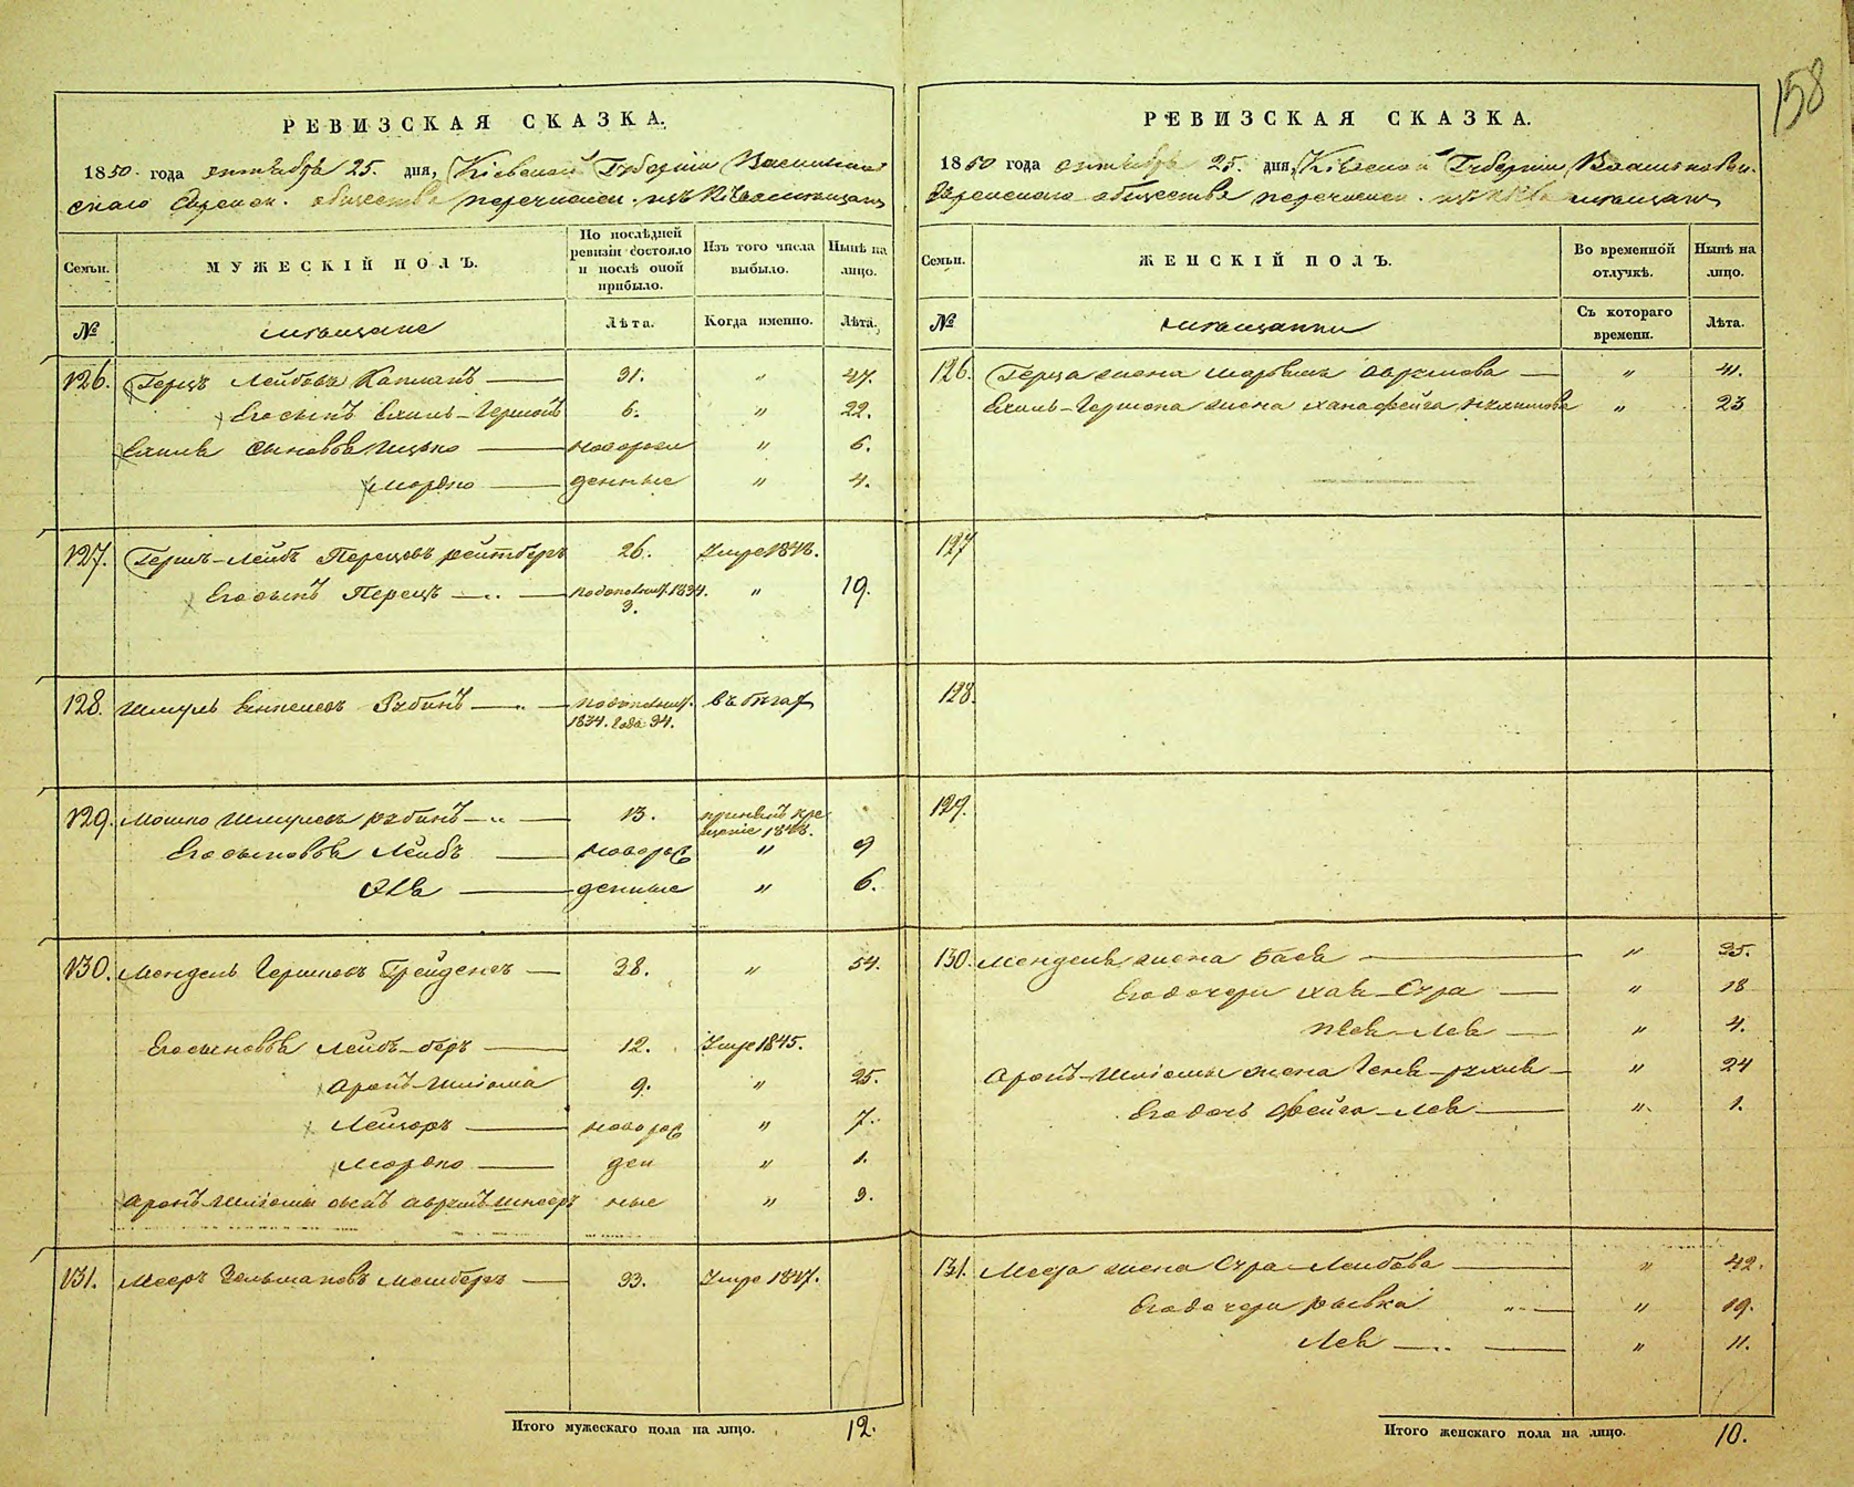 158
РЕВИЗСКАЯ СКАЗКА.
1850 года октября 25. дня, Кіевской Губерніи Василиков
скаго Еврейск. общества перечислен. изъ мѣщанъ
Семьи.
МУЖЕСКІЙ ПОЛЪ.
По послѣдней ревизіи состояло и послѣ оной прибыло.
Изъ того числа выбыло.
Нынѣ на лицо.
№
мѣщане
Лѣта.
Когда именно.
Лѣта.
126. Герцъ Лейбовъ Капланъ 31. " 47.
Его сынъ Ехиль-Гершонъ 6. " 22.
Ехиля сыновья Ицько новорож " 6.
Мордко денные " 4.
127. Гершъ-Лейбъ Перецовъ 26. Умре 1848.
Его сынъ Перецъ 1834. 3. " 19.
128. Шмуль Рубинъ 1834. года 34. въ бѣгах
129. Мошко Шмулевъ Рубинъ 13. принялъ кре
щеніе 1848.
Его сыновья Лейбъ новорож " 9
денные " 6.
130. Мендель Гершковъ 38. " 54.
Его сыновья Лейбъ-беръ 12. Умре 1845.
Аронъ-Шліома 9. " 25.
Лейзоръ новорож " 7.
Мордко ден " 1.
Аронъ Шліомы сынъ ные " 3.
131. Мееръ Зельмановъ 33. Умре 1847.
Итого мужескаго пола на лицо. 12.
РЕВИЗСКАЯ СКАЗКА.
1850 года октября 25. дня, Кіевской Губерніи Васильков
Еврейскаго общества перечислен. изъ мѣщанъ
Семьи.
ЖЕНСКІЙ ПОЛЪ.
Во временной отлучкѣ.
Нынѣ на лицо.
№
мѣщанки
Съ котораго времени.
Лѣта.
126. Герца жена " 41.
Ехиль-Гершона жена Хана Фейга " 23
127
128.
129.
130. Менделя жена Бася " 35.
Его дочери Хая-Сура " 18
Лея " 4.
Аронъ-Шліомы жена " 24
Его дочь Фейга-Лея " 1.
131. Меера жена Сура Лейбова " 42.
Его дочери Рывка " 19.
Лея " 11.
Итого женскаго пола на лицо. 10.